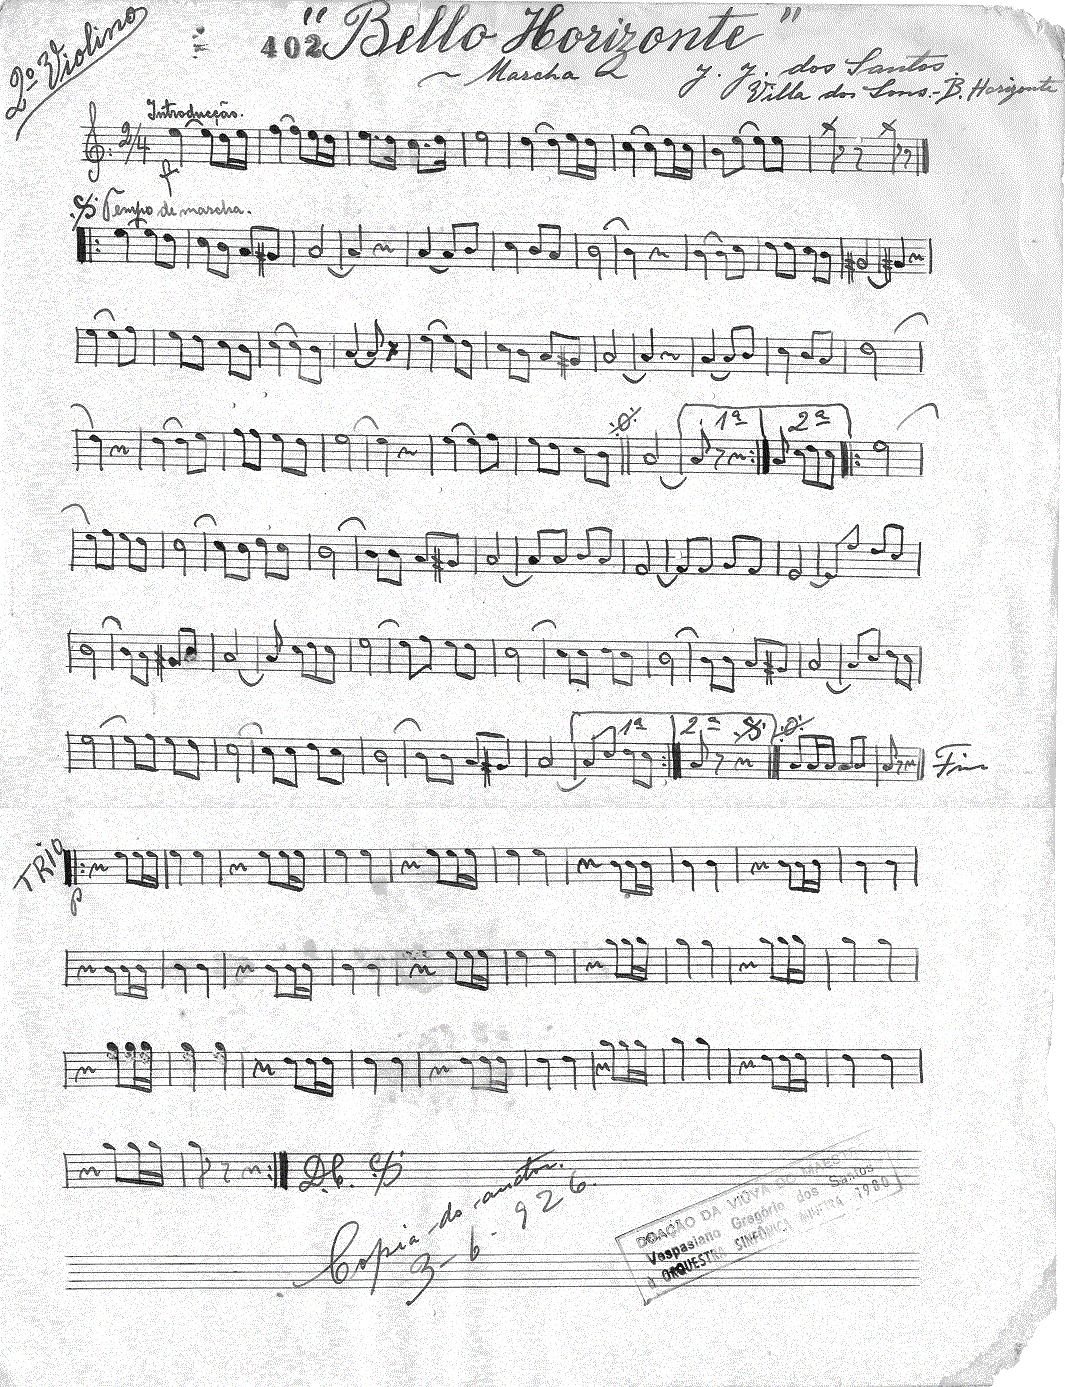 2º Violino
402 "Bello Horizonte"
Marcha
J. J. dos Santos.
Villa dos Sons.- B. Horizonte
Introducção.
2/4
f
Tempo de marcha.
1ª 2ª
1ª 2ª
Fim
TRIO
p
D.C.
Copia do auctor.
3-6-926.
DOAÇÃO DA VIÚVA DO MAESTRO
Vespasiano Gregório dos Santos
à ORQUESTRA SINFÔNICA MINEIRA 1980